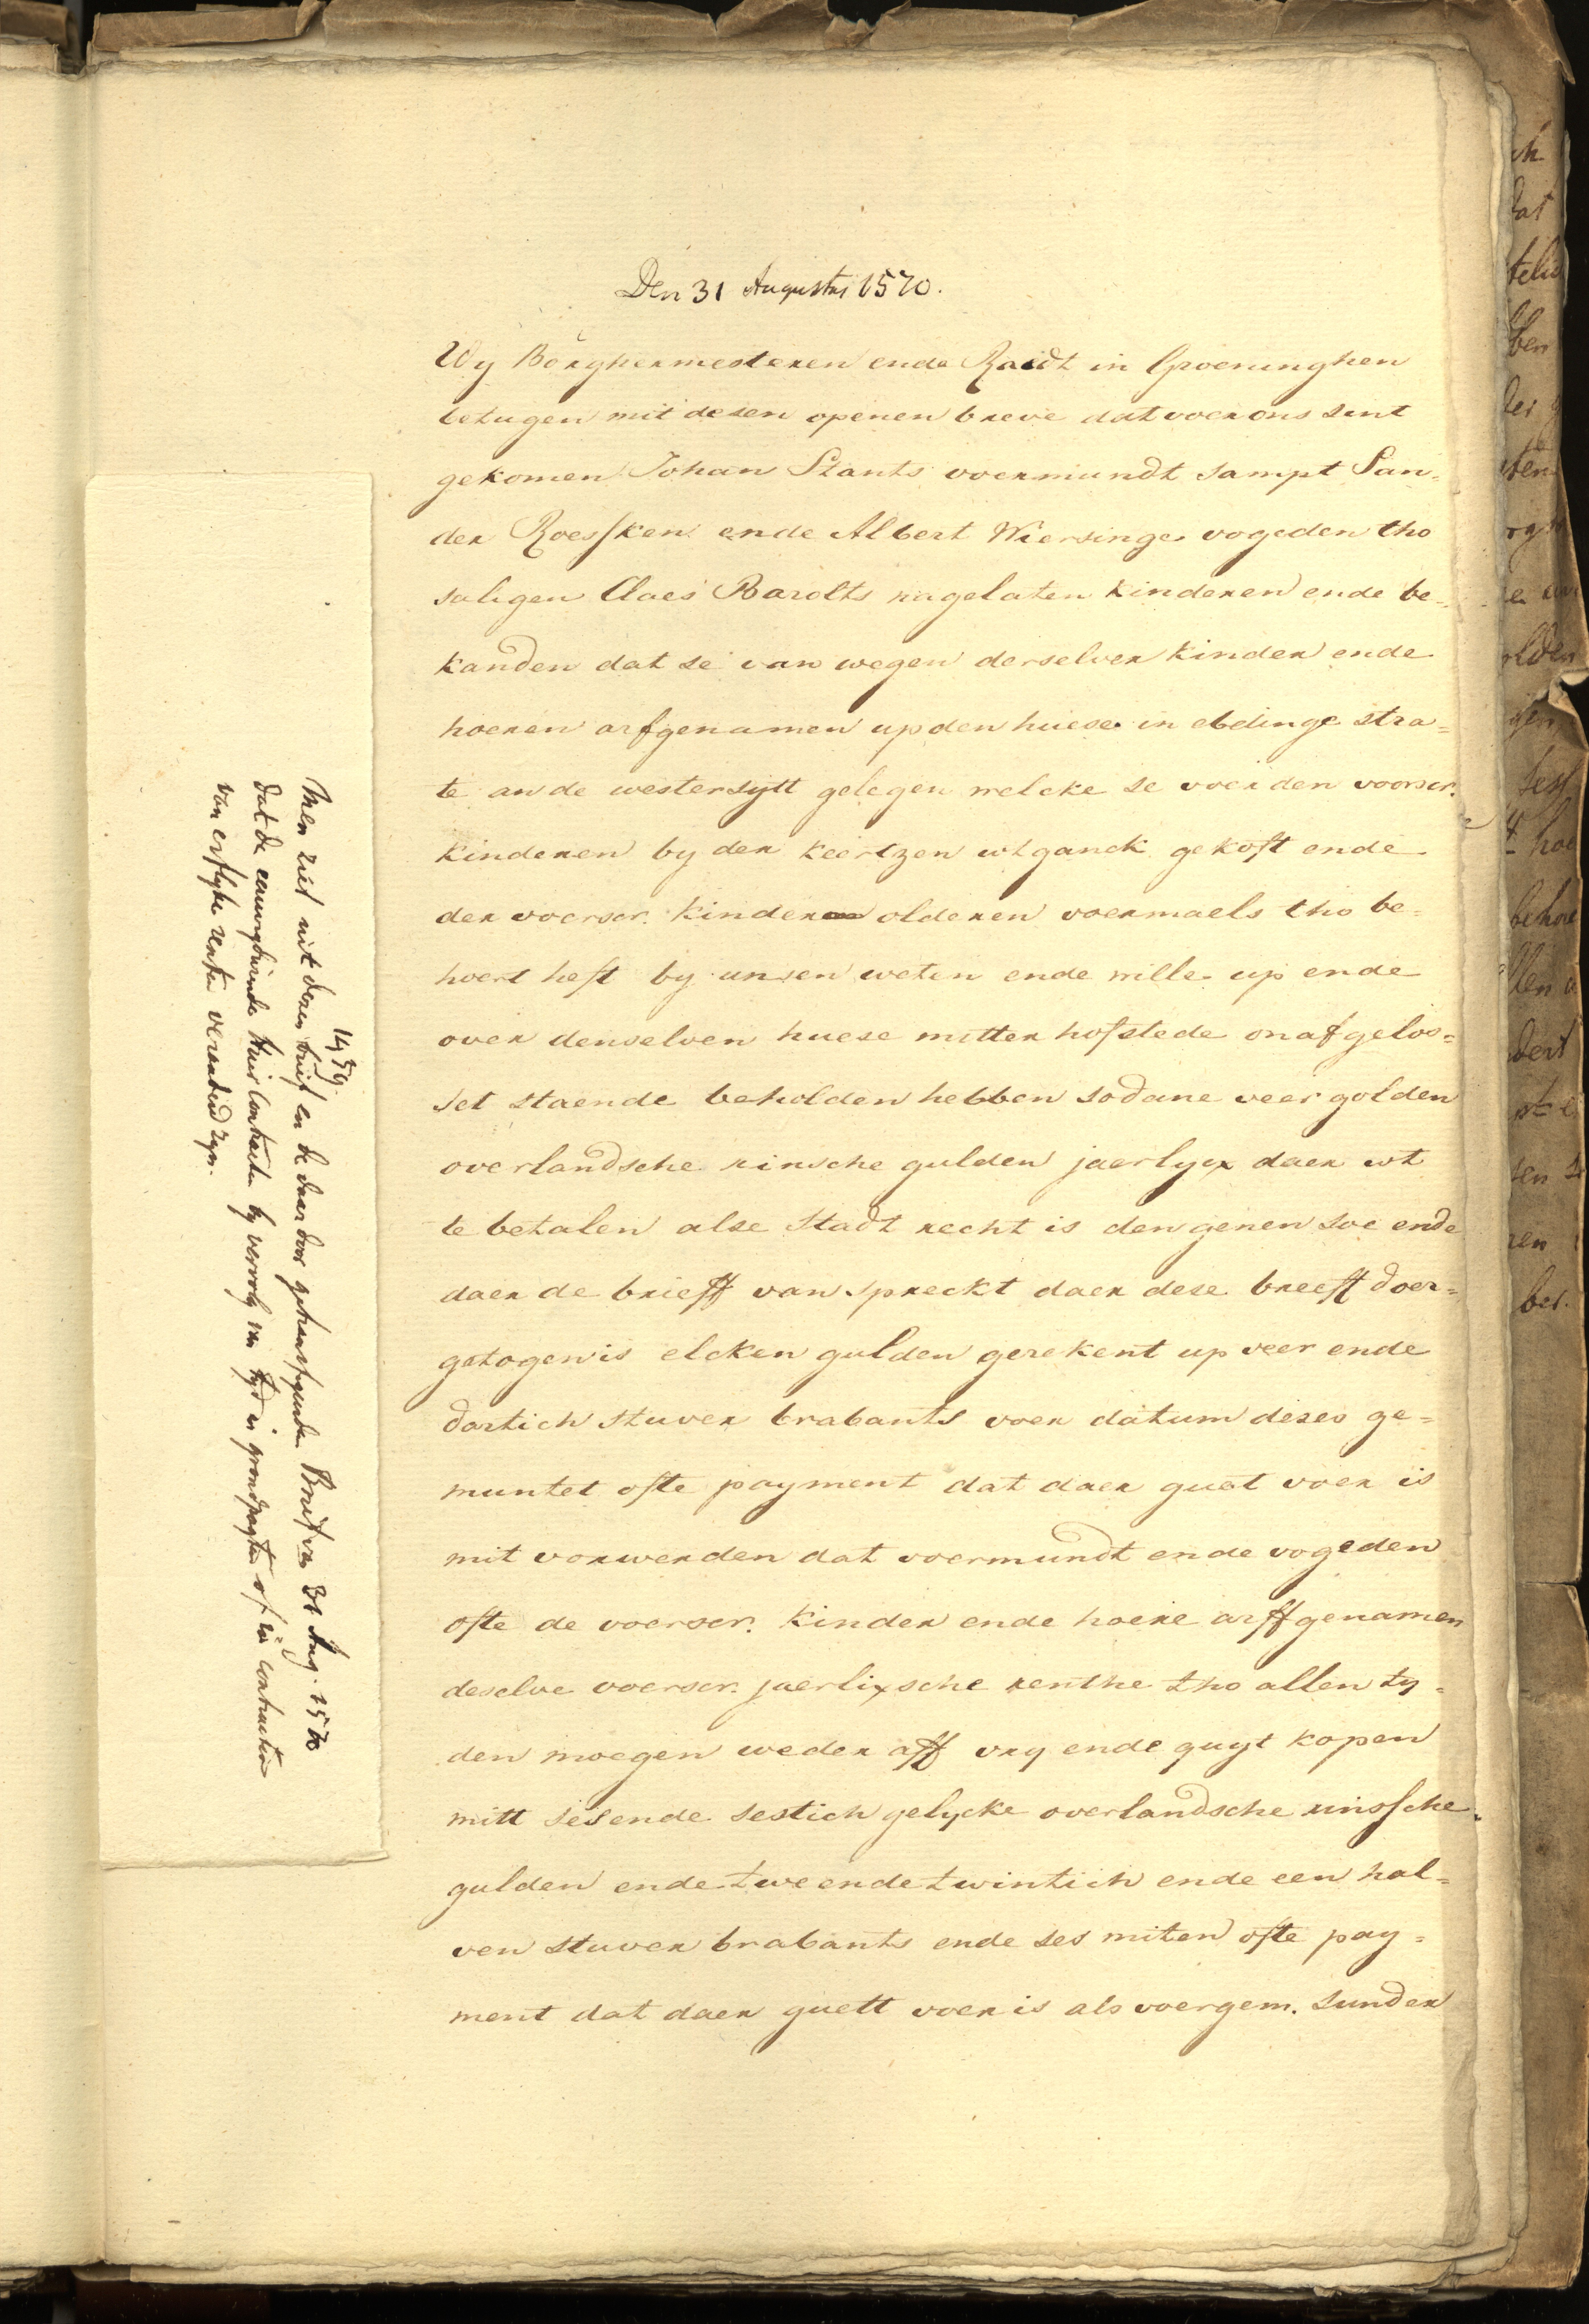 Den 31 Augustus 1570.
Wy Börghermesteren ende Raidt in Groeninghen
betugen mit desen openen breve dat voer ons sint
gekomen Johan Stants voermundt sampt San=
der Roessken ende Albert Wiersinge vogeden tho
saligen Claes Barolts nagelaten kinderen ende be=
kanden dat se van wegen derselver kinder ende
hoeren arfgenamen up den huese in ebdinge stra=
te an de westersytt gelegen welcke se voer den voorscr.
kinderen by der keertzen utganck gekoft ende
der voerscr. kinder olderen voermaels tho be=
hoert heft by unsen weten ende wille up ende
over denselven huese mitter hofstede onafgelos=
set staende beholden hebben sodane veer golden
overlandsche rinsche gulden jaerlycx daer ut
te betalen alse Stadt recht is den genen soe ende
daer de brieff van spreckt daer dese breeff doer=
getogen is elcken gulden gerekent up veer ende
dartich stuver brabants voer datum deses ge=
muntet ofte payment dat daer guet voer is
mit vorwerden dat voermundt ende vogeden
ofte de voerscr. kinder ende hoere arffgenamen
deselve voerscr. jaerlixsche renthe tho allen ty=
den moegen weder aff vry ende quyt kopen
mitt ses ende sestich gelycke overlandsche rinssche
gulden ende twe ende twintich ende een hal=
ven stuver brabants ende ses miten ofte pay=
ment dat daer guett voer is als voergem. sunder
1459.
Men ziet uit dezen brief en de daar door getransfigeerde Brief van 31 Aug. 1570
dat de eeuwigdurende Huur Contracten by vervolg van tyd in grondpagten of in contracten
van erflyke renten veranderd zyn.